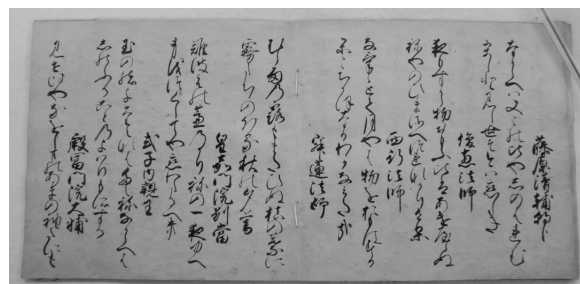 藤原清輔朝臣
なからへは又此比やしのはれむ
うしと見し世そ今は恋しき
俊恵法師
夜もすから物おもふ比は明やらぬ
ねやのひまさへつれなかりけり
西行法師
なけゝとて月やは物をおもはする
かこちかほなるわかなみたかな
寂蓮法師
むら雨の露もまたひぬ槙の葉に
霧たちのほる秋の夕暮
皇嘉門院別當
難波江の芦のかりねの一夜ゆへ
身をつくしてや恋わたるへき
式子内親王
玉の緒よたえなはたえねなからへは
しのふることのよはりもそする
殷富門院大輔
見せはやなをしまのあまの袖たにも